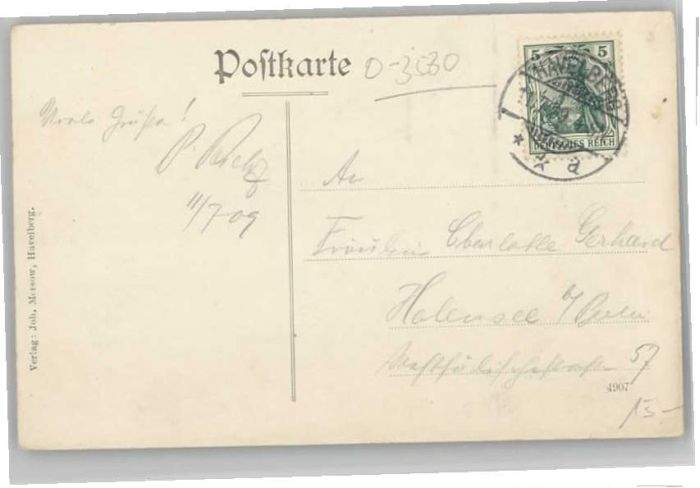 Postkarte
O-3530
5 5
HAVELBERG
DEUTSCHES REICH
Viele Grüße!
P.
11/7 09
An
Fräulein Charlotte Gerhard
Halensee b/ Berlin
Westfälischestraße 57
4907
15-
Verlag: Joh. Mersow, Havelberg.